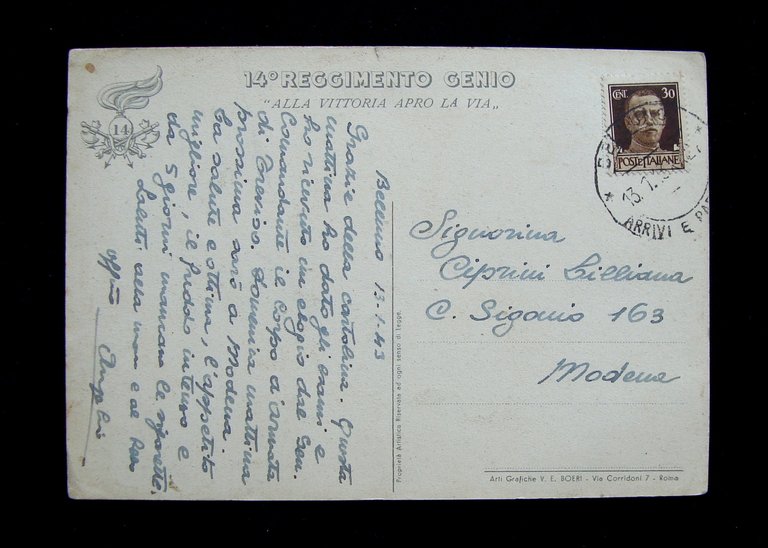 14
14º REGGIMENTO GENIO
"ALLA VITTORIA APRO LA VIA„
CENT. 30
POSTE ITALIANE
13.1.
ARRIVI E PAR
Belluno 13.1.43
Grazie della cartolina. Questa
mattina ho dato gli esami e
ho ricevuto un elogio dal Gen.
Comandante il Corpo d'armata
di Treviso. Domenica mattina
prossima sarò a Modena.
La salute è ottima, l'appetito
migliore, il freddo intenso e
da 5 giorni mancan le sigarette.
Saluti alla mam e al
aff/mo Angelo
Proprietà Artistica Riservata ad ogni senso di Legge.
Signorina
Ciprini Lilliana
C. Sigonio 163
Modena
Arti Grafiche V. E. BOERI - Via Corridoni 7 - Roma